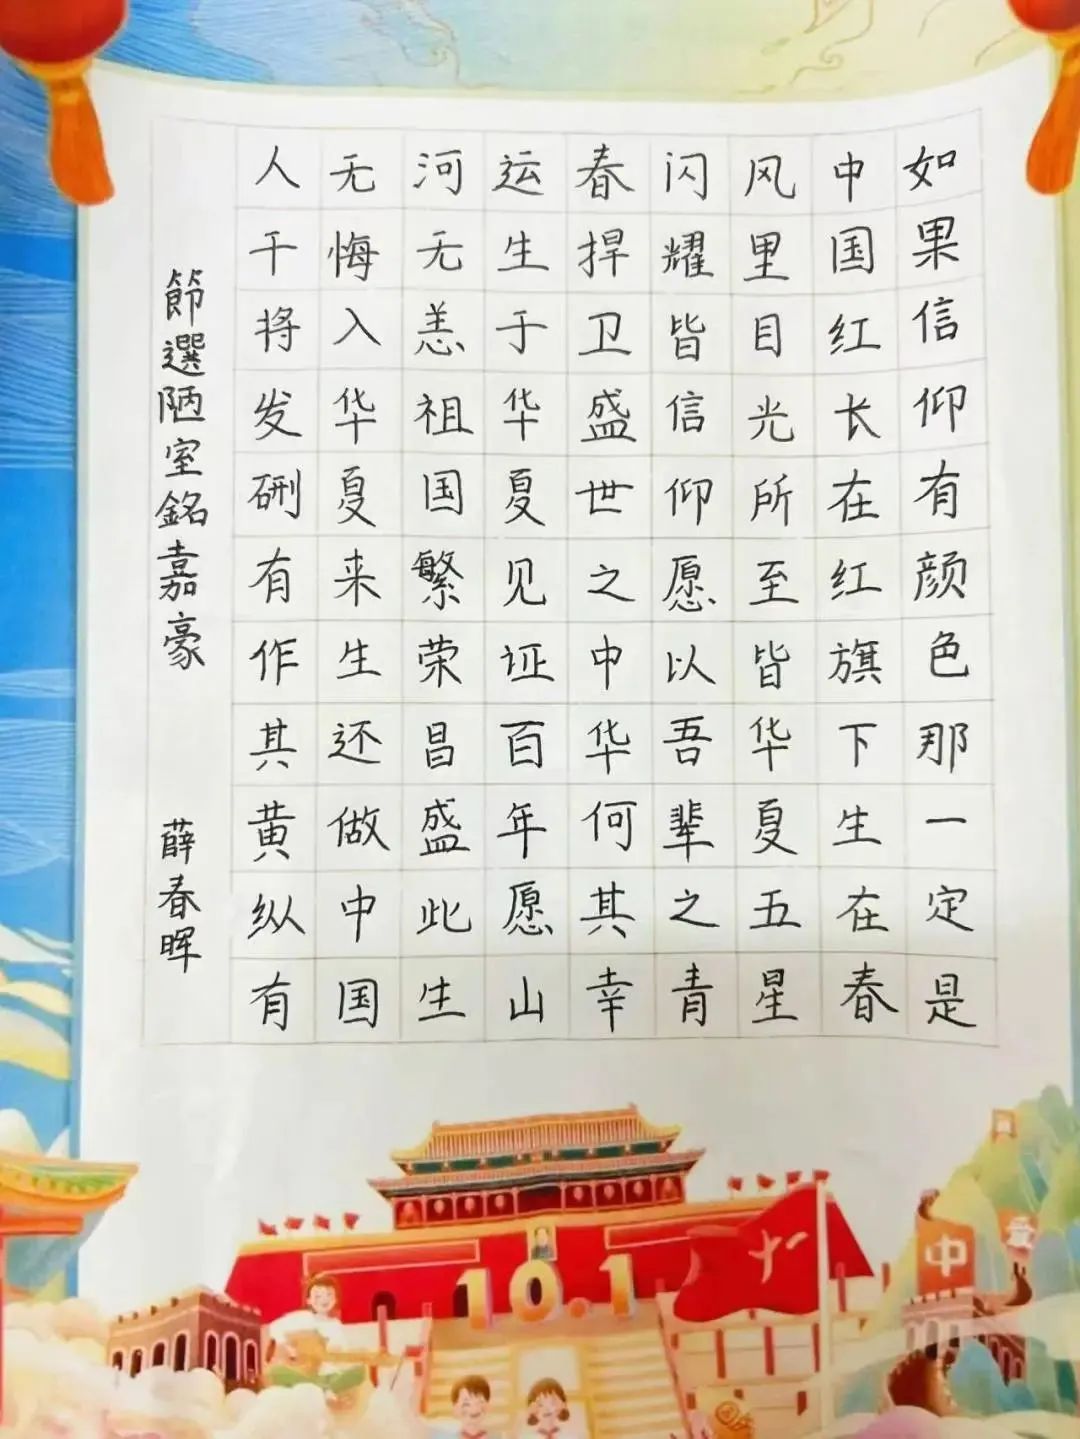 如果信仰有颜色那一定是
中国红长在红旗下生在春
风里目光所至皆华夏五星
闪耀皆信仰愿以吾辈之青
春捍卫盛世之中华何其幸
运生于华夏见证百年愿山
河无恙祖国繁荣昌盛此生
无悔入华夏来生还做中国
人干将发硎有作其黄纵有
節選陋室銘嘉豪
薛春晖
10.1
中